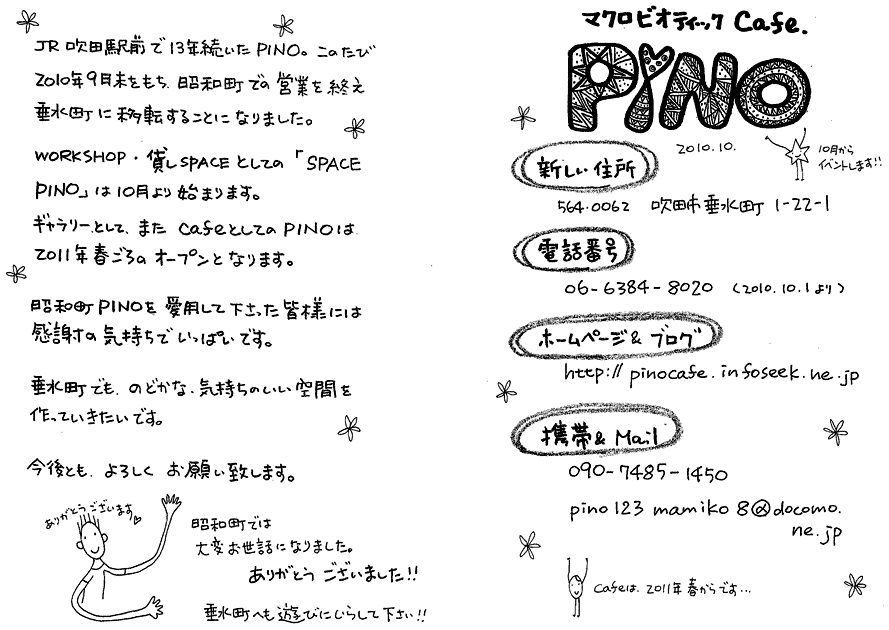 JR吹田駅前で13年続いたPINO。このたび
2010年9月末をもち、昭和町での営業を終え
垂水町に移転することになりました。
WORKSHOP・貸しSPACEとしての「SPACE
PINO」は10月より始まります。
ギャラリーとして、また CafeとしてのPINOは
2011年春ごろのオープンとなります。
昭和町PINOを愛用して下さった皆様には
感謝の気持ちでいっぱいです。
垂水町でも、のどかな、気持ちのいい空間を
作っていきたいです。
今後とも、よろしく お願い致します。
ありがとうございます♡
昭和町では
大変お世話になりました。
ありがとう ございました!!
垂水町へも遊びにいらして下さい!!
マクロビオティック Cafe.
PINO
2010.10.
10月から
イベントします!!
新しい住所
564-0062 吹田市垂水町 1-22-1
電話番号
06-6384-8020 (2010.10.1より)
ホームページ& ブログ
http://pinocafe.infoseek.ne.jp
携帯& Mail
090-7485-1450
pino123mamiko8@docomo.
ne.jp
Cafeは、2011年春からです…